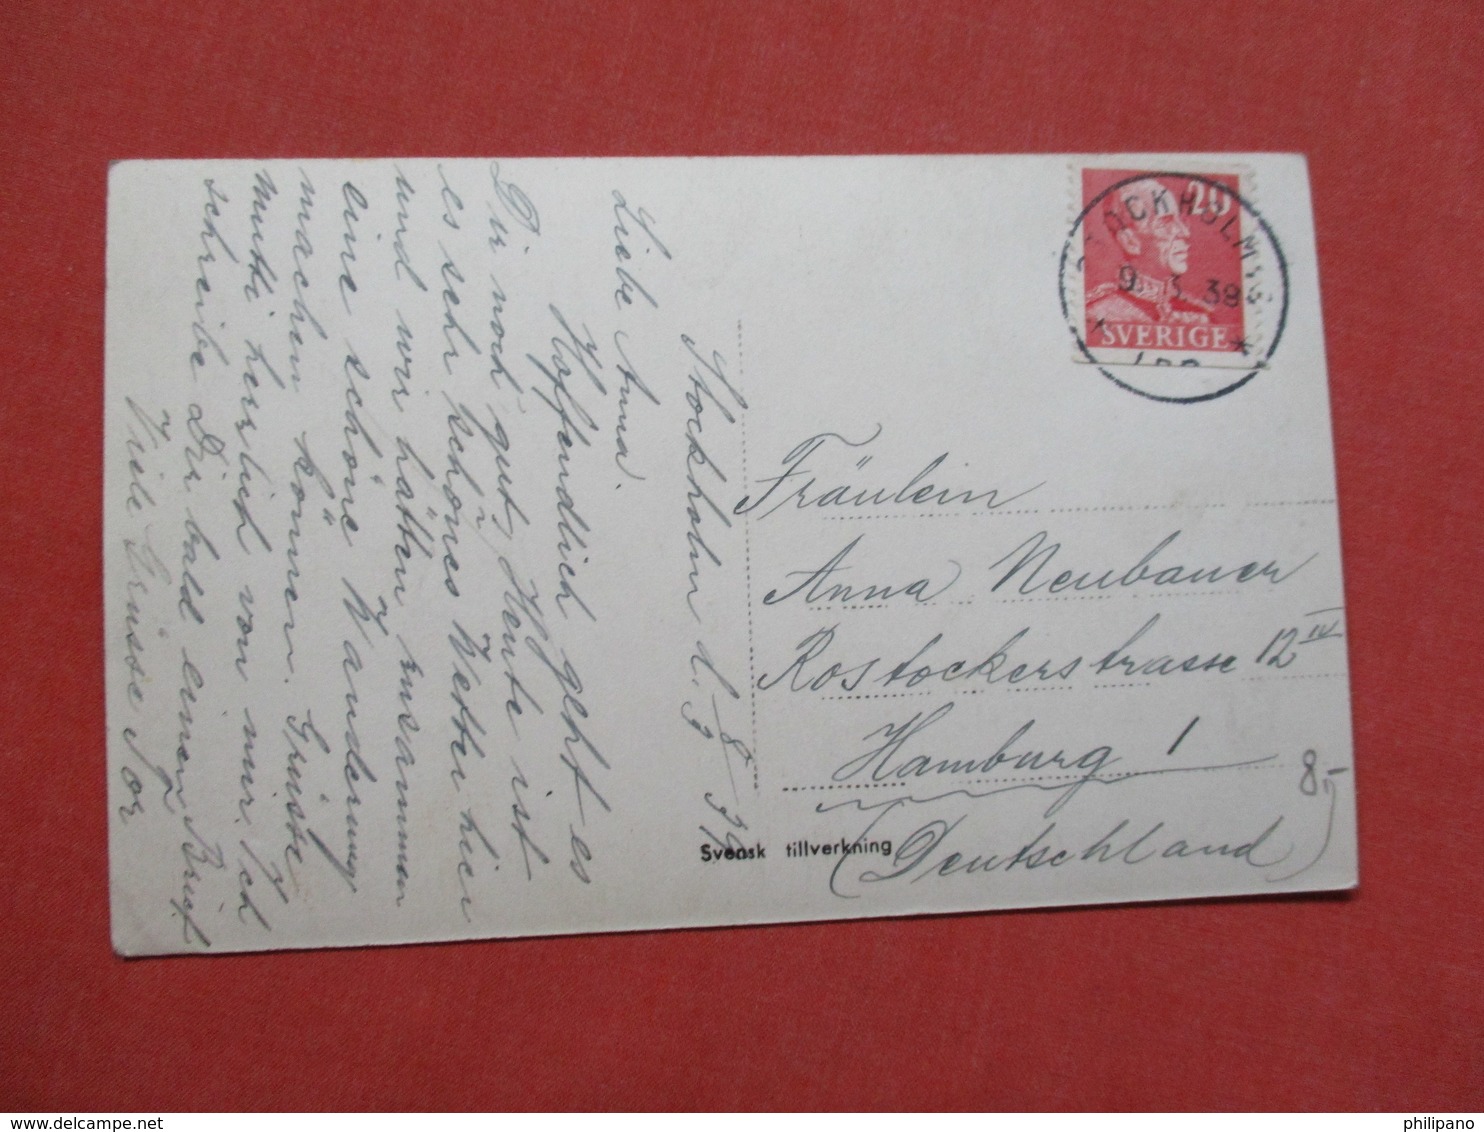 Stockholm d. 8/5 39.
Liebe Anna.
Hoffendlich geht es
Dir noch gut, Heute ist
es sehr schönes Wetter hier
und wir hätten zusammen
eine schöne Wanderung
machen können. Grüsse
mutti herzlich von mir. Ich
schreibe Dir bald einen Brief.
Viele Grüsse
20
STOCKHOLM
SVERIGE
Fräulein
Anna Neubauer
Rostockerstrasse 12 IV
Hamburg 1
(Deutschland)
8-
Svensk tillverkning
delcampe.net
philipano